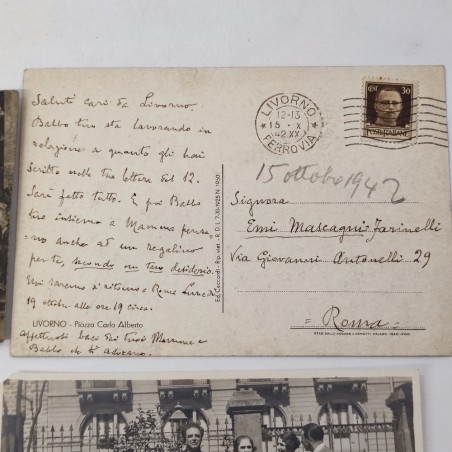 Saluti cari da Livorno.
Babbo tuo sta lavorando in
relazione a quanto gli hai
scritto nella tua lettera del 12.
Sarà fatto tutto. E poi Babbo
tuo insieme a Mamma pensa-
no anche ad un regalino
per te, secondo un tuo desiderio.
Noi saremo di ritorno a Roma Lunedì
19 ottobre alle ore 19 circa.
LIVORNO - Piazza Carlo Alberto
affettuosi baci dai tuoi Mamma e
Babbo che ti adorano.
Ed. Ceccardi - Rip. viet. - R. D. L. 7-XI-1925 N. 1950
LIVORNO
12-13
15 - X
42 XX
FERROVIA
CENT 30
POSTE ITALIANE
15 ottobre 1942
Signora
Emi Mascagni Farinelli
Via Giovanni Antonelli 29
= Roma =